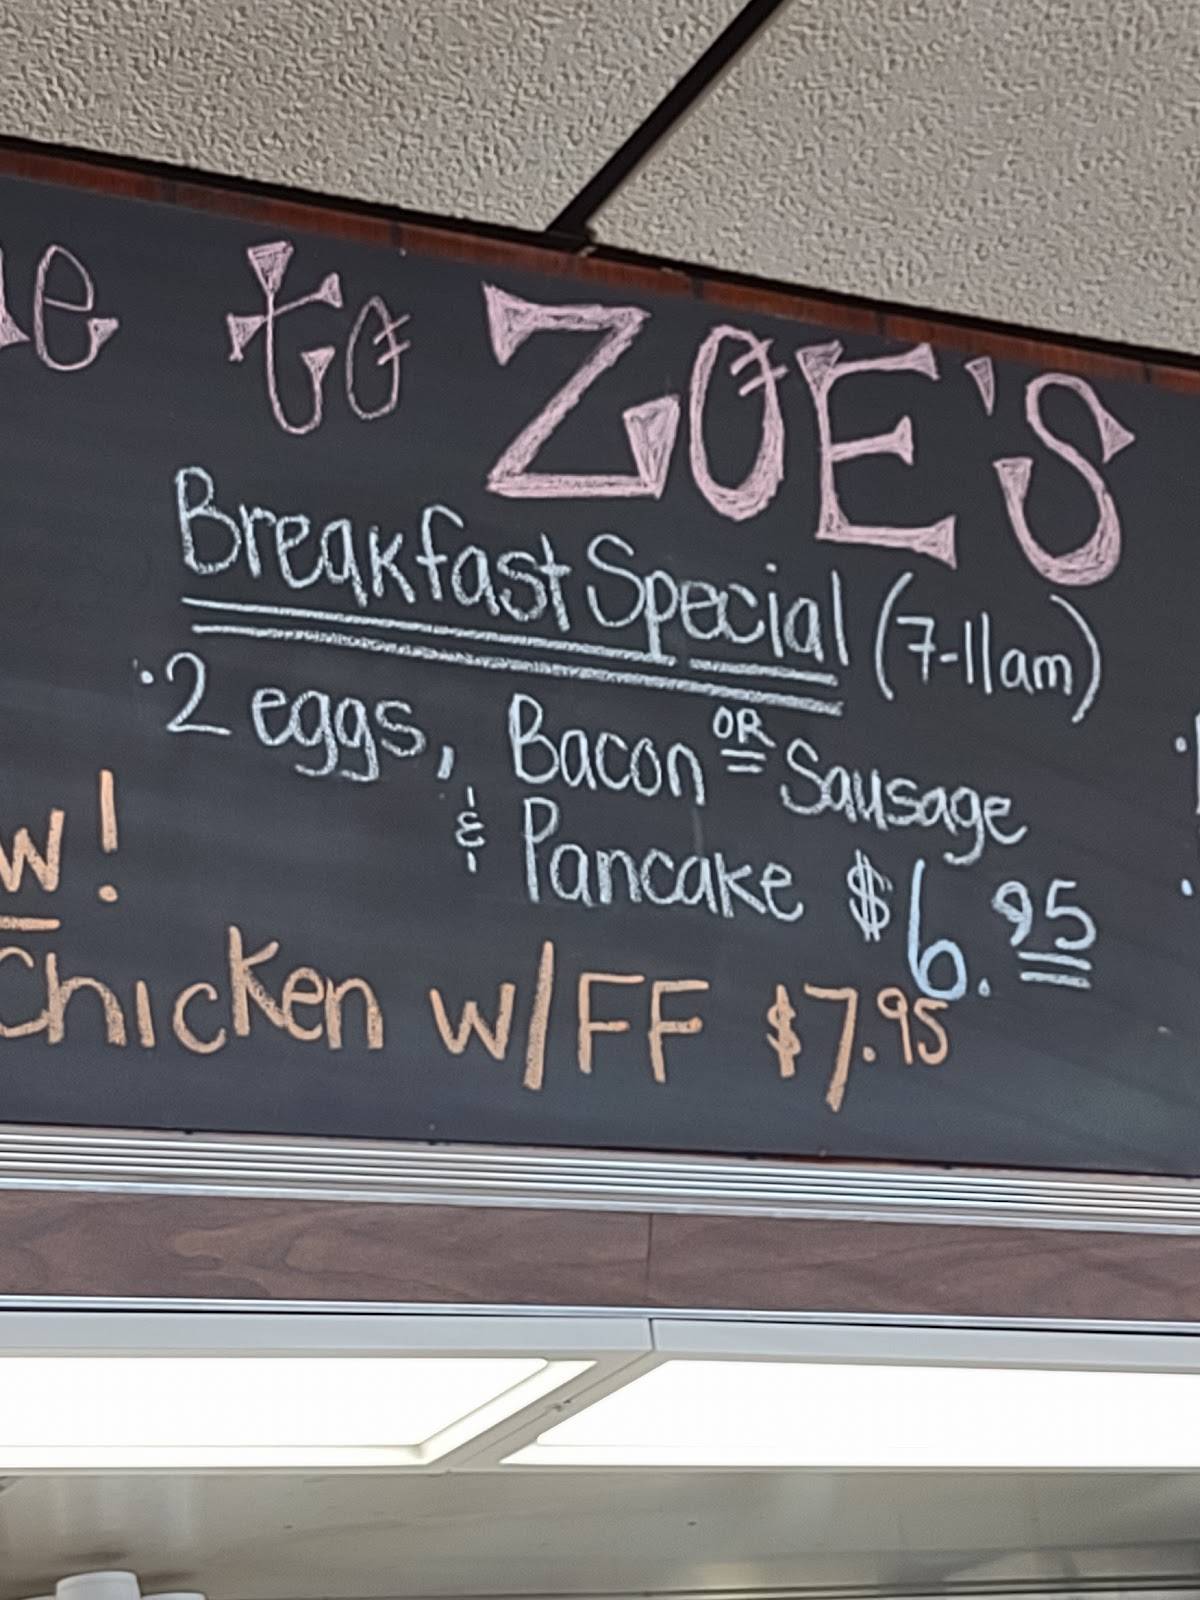 to ZOE'S
Breakfast Special (7-11am)
·2 eggs, Bacon OR Sausage
& Pancake $6.95
w!
Chicken w/FF $7.95